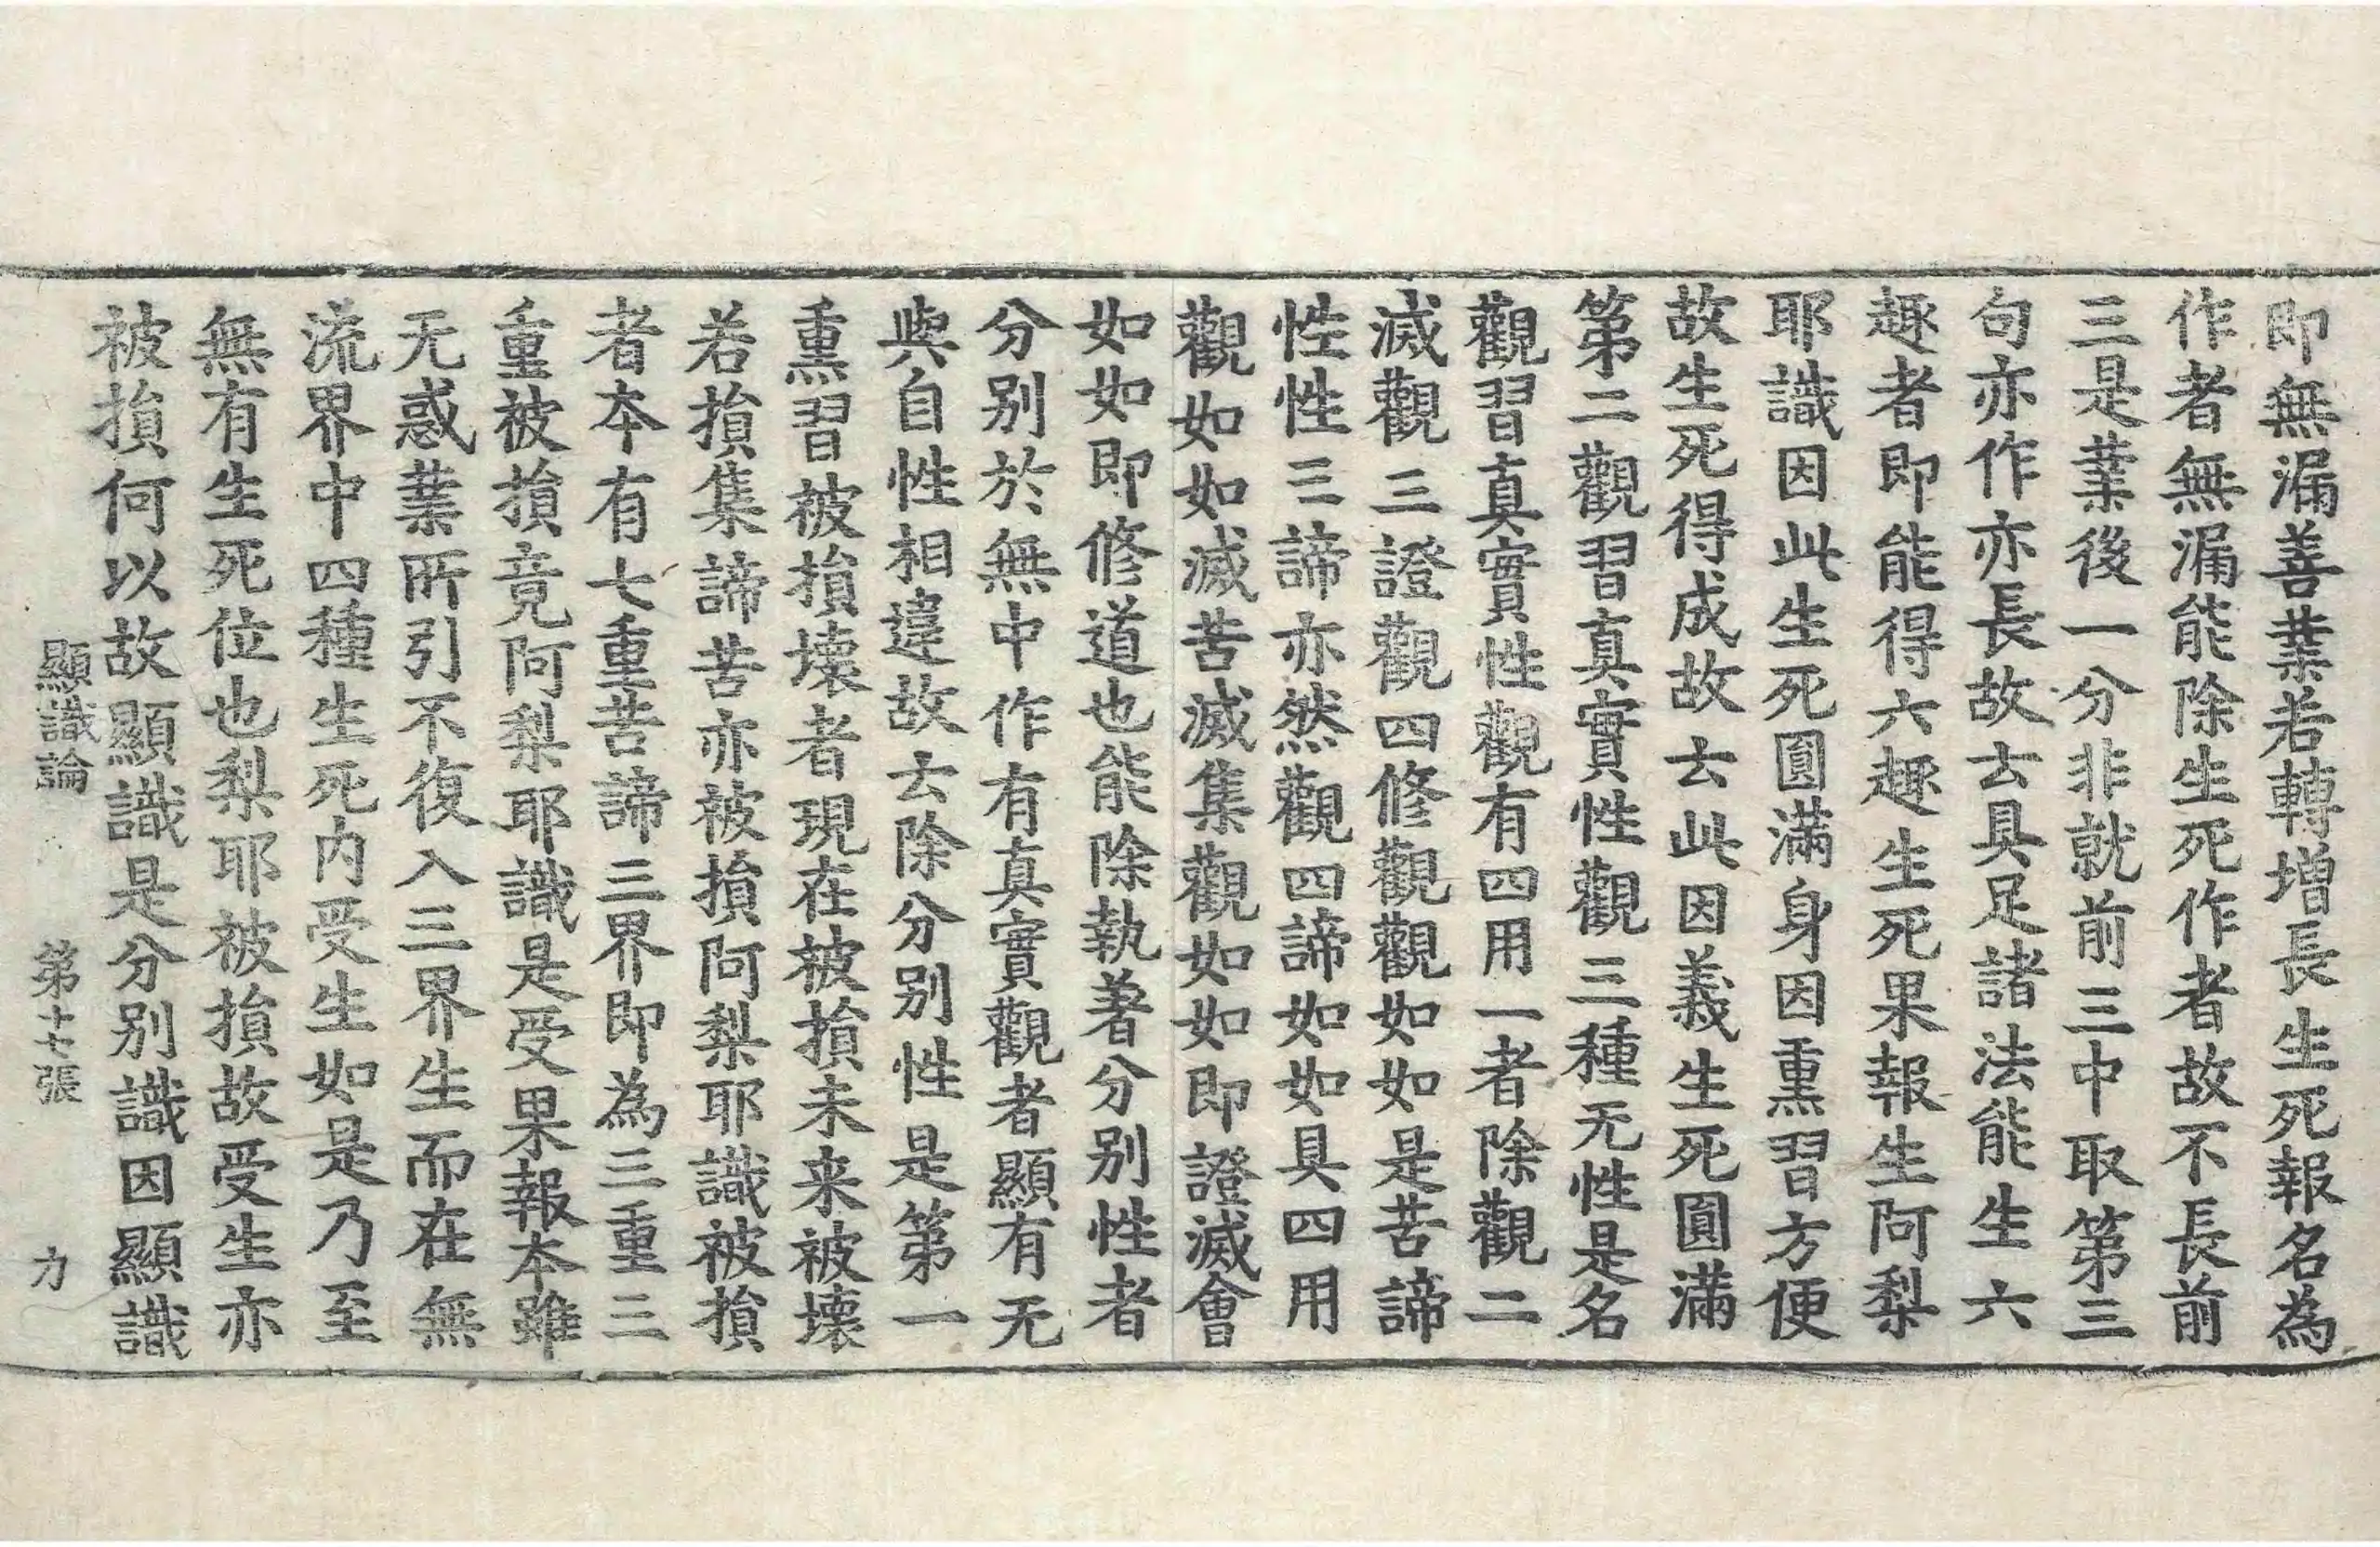 即無漏善業若轉增長生死報名為
作者無漏能除生死作者故不長前
三是業後一分非就前三中取第三
句亦作亦長故云具足諸法能生六
趣者即能得六趣生死果報生阿梨
耶識因此生死圓滿身因熏習方便
故生死得成故云此因義生死圓滿
第二觀習真實性觀三種无性是名
觀習真實性觀有四用一者除觀二
滅觀三證觀四修觀觀如如是苦諦
性性三諦亦然觀四諦如如具四用
觀如如滅苦滅集觀如如即證滅會
如如即修道也能除執著分別性者
分別於無中作有真實觀者顯有无
與自性相違故云除分別性是第一
熏習被損壞者現在被損未来被壞
若損集諦苦亦被損阿梨耶識被損
者本有七重苦諦三界即為三重三
重被損竟阿梨耶識是受果報本雖
无惑業所引不復入三界生而在無
流界中四種生死内受生如是乃至
無有生死位也梨耶被損故受生亦
被損何以故顯識是分別識因顯識
顯識論 第十七張 力